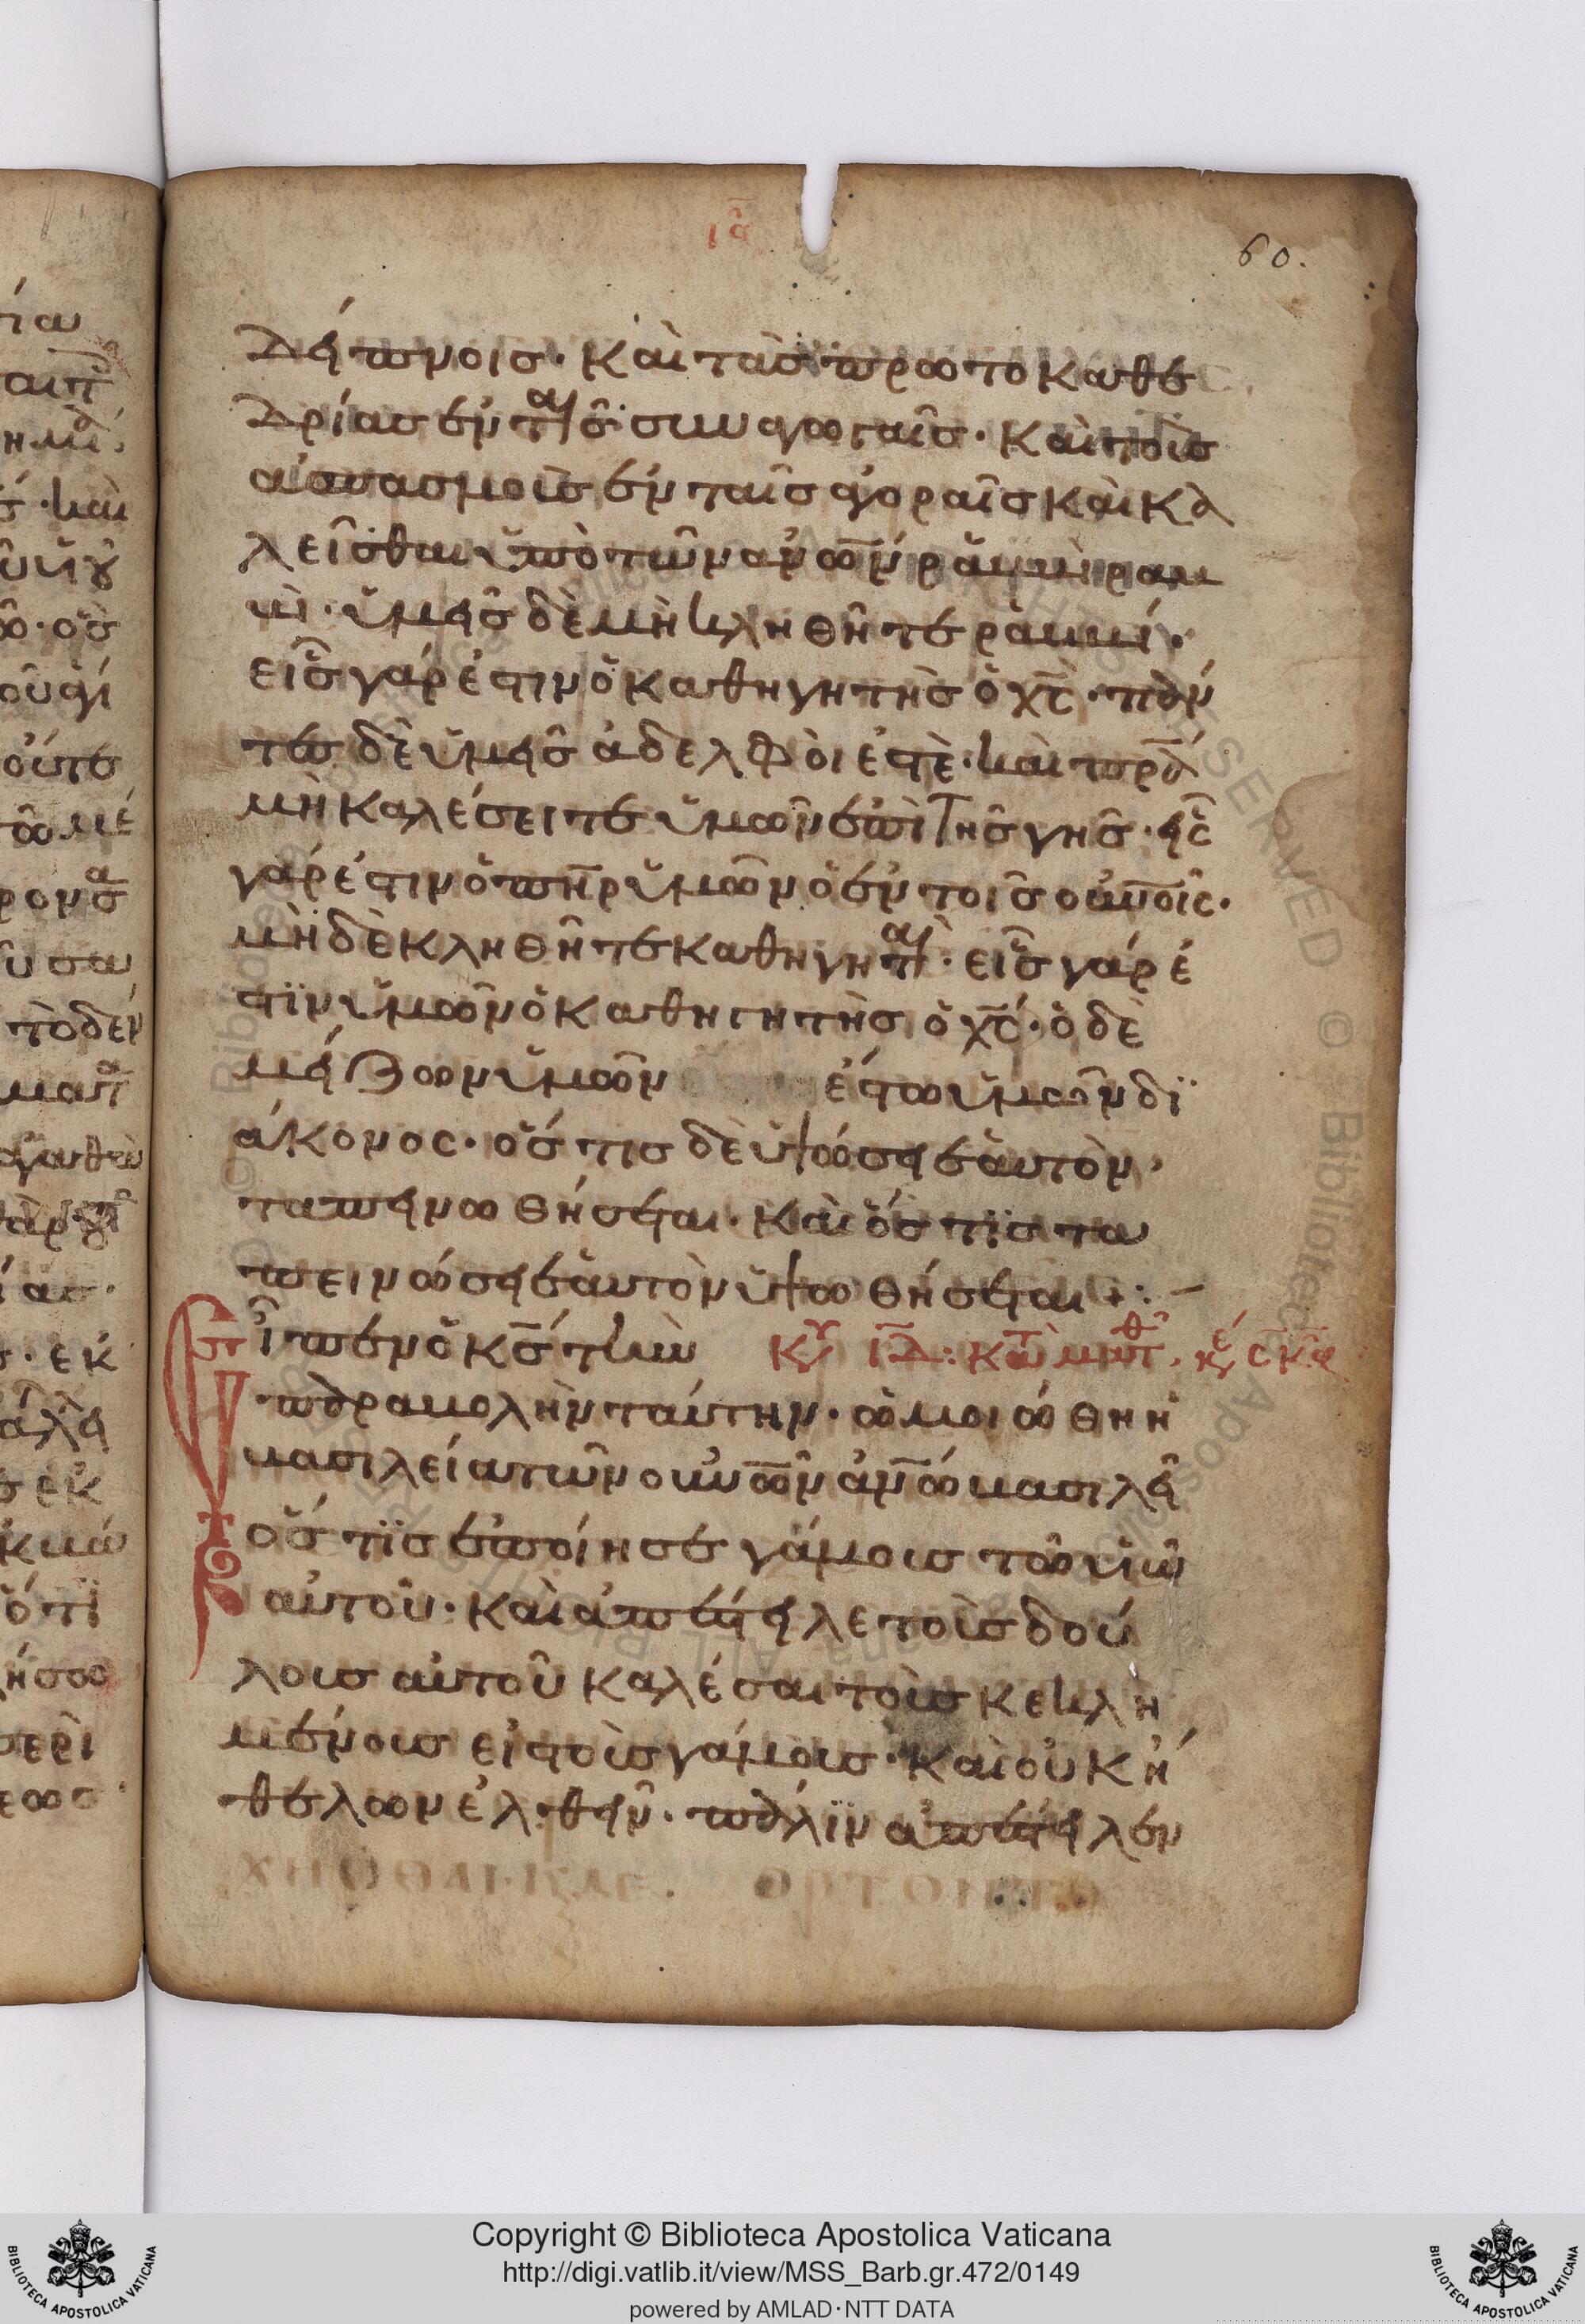 ια
60.
δείπνοις· καὶ τὰσ πρωτοκαθε
δρίασ ἐν ταῖσ συναγωγαῖσ· καὶ τοὺσ
ἀσπασμοὺσ ἐν ταῖσ ἀγοραῖσ καὶ κα
λεῖσθαι ὑπὸ τῶν ἀν̅ω̅ν ῥαββὶ ραβ
βὶ· ὑμεῖσ δὲ μὴ κληθῆτε ραββί·
εἷσ γάρ ἐστιν ὁ καθηγητὴσ ὁ χ̅ς· πάν
τεσ δὲ ὑμεῖσ ἀδελφοὶ ἐστὲ· καὶ π̅ρ̅α
μὴ καλέσειτε ὑμῶν ἐπὶ τῆσ γῆσ· εἷς
γάρ ἐστιν ὁ π̅η̅ρ ὑμῶν ὁ ἐν τοῖσ οὐν̅οῖς·
μὴ δὲ κληθῆτε καθηγηταὶ· εἷσ γάρ ἐ
στϊν ὑμῶν ὁ καθηγητὴσ ὁ χ̅ς· ὁ δὲ
μείζων ὑμῶν ἔστω ὑμῶν δϊ
άκονος· ὅστισ δὲ ὑψώσει ἑαυτὸν,
ταπεινωθήσεται· καὶ ὅστϊσ τα
πεινώσει ἑαυτὸν ὑψωθήσεται+:–
Εἶπεν ὁ κ̅ς τὴν κυ ιδ: κατὰ ματθ, κε σκα
παραβολὴν ταύτην· ὡμοιώθη ἡ
βασιλεία τῶν οὐν̅ω̅ν ἀν̅ω̅ βασιλεῖ
ὅστϊσ ἐποίησε γάμουσ τῶ υἱῶ
αὐτοῦ· καὶ ἀπέστειλε τοὺσ δού
λουσ αὐτοῦ καλέσαι τοὺσ κεκλη
μένουσ εἰστοὺσ γάμουσ· καὶ οὐκ ἤ
θελων ἐλθεῖν· πάλϊν ἀπέστειλεν
Copyright © Biblioteca Apostolica Vaticana
http://digi.vatlib.it/view/MSS_Barb.gr.472/0149
powered by AMLAD·NTT DATA
BIBLIOTECA APOSTOLICA VATICANA
BIBLIOTECA APOSTOLICA VATICANA